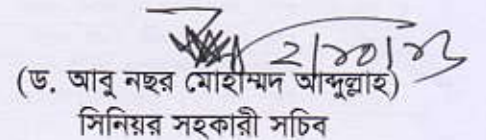 ২/১০/১৩
(ড. আবু নছর মোহাম্মদ আব্দুল্লাহ)
সিনিয়র সহকারী সচিব